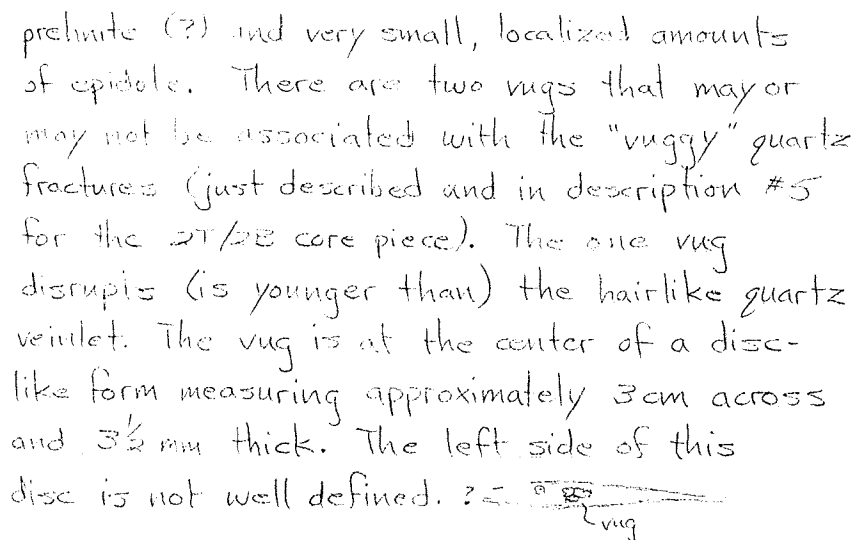 prehnite (?) and very small, localized amounts
of epidote. There are two vugs that may or
may not be associated with the "vuggy" quartz
fractures (just described and in description #5
for the 2T/2B core piece). The one vug
disrupts (is younger than) the hairlike quartz
veinlet. The vug is at the center of a disc-
like form measuring approximately 3 cm across
and 3½ mm thick. The left side of this
disc is not well defined. ?
vug